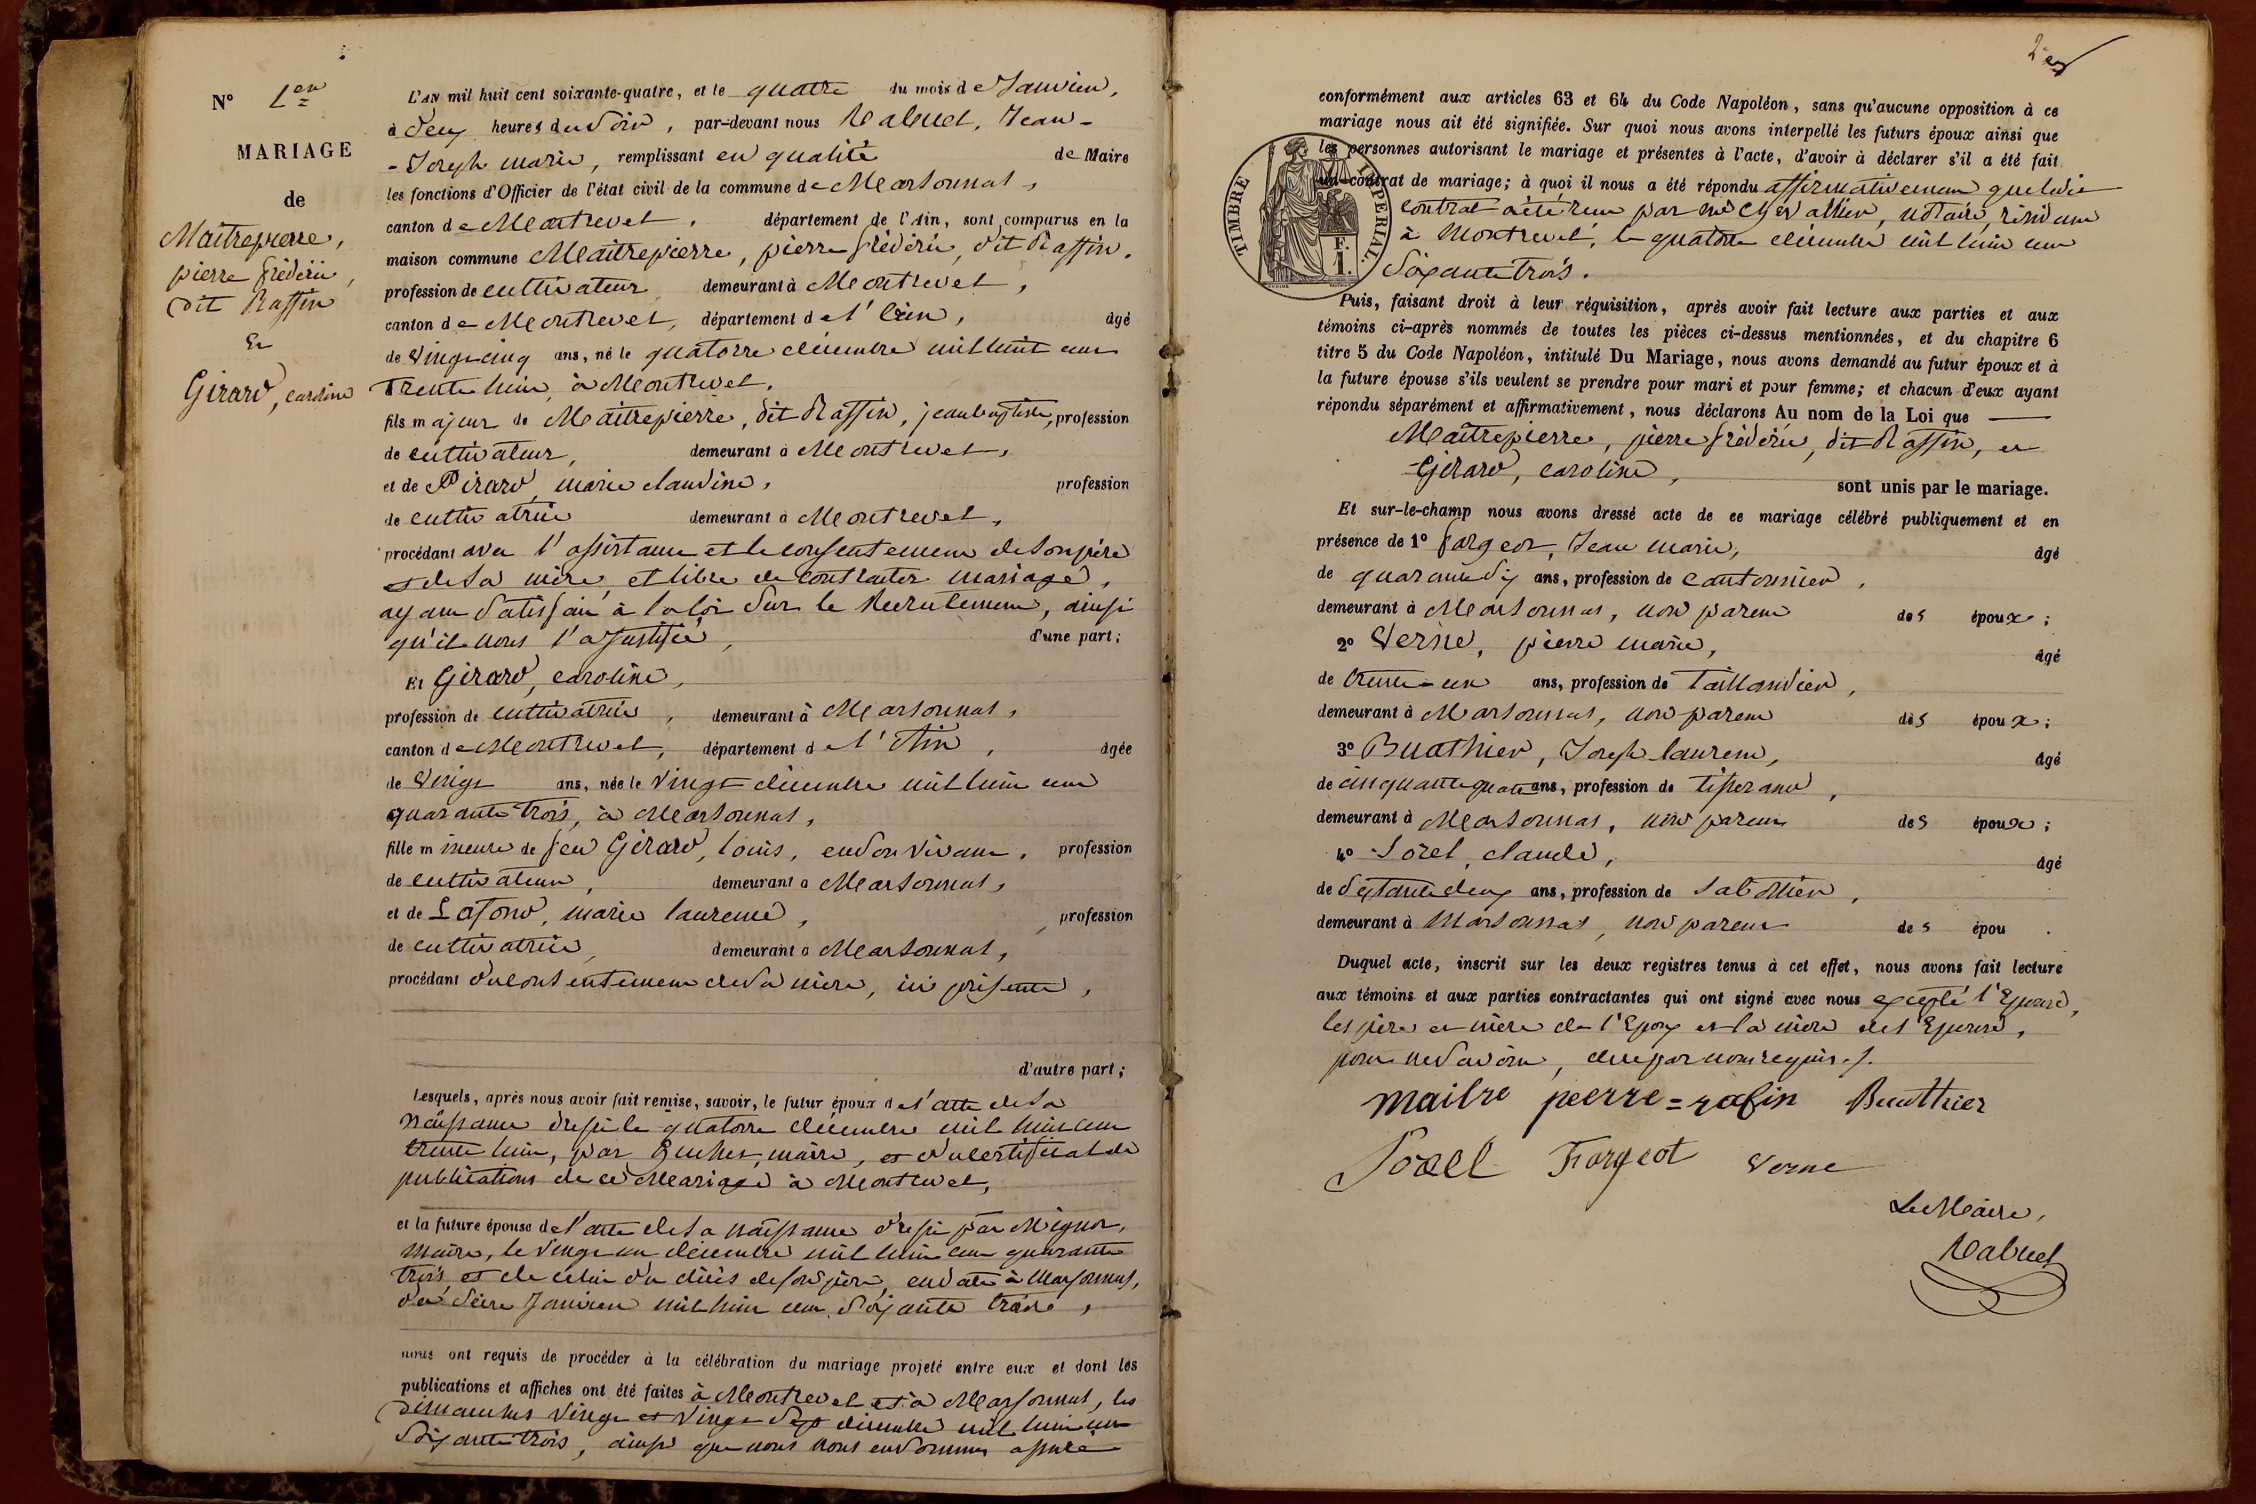 N° 1er
MARIAGE
de
Maitrepierre,
pierre frédéric,
dit Raffin
Et
Girard, caroline
L'AN mil huit cent soixante-quatre, et le quatre du mois de Janvier,
à deux heures du Soir, par-devant nous Rabuel, Jean-
-Joseph marie, remplissant en qualité de Maire
les fonctions d'Officier de l'état civil de la commune de Marsonnas,
canton de Montrevel, département de l'Ain, sont comparus en la
maison commune Maitrepierre, pierre frédéric, dit Raffin,
profession de cultivateur demeurant à Montrevel,
canton de Montrevel, département de l'Ain, âgé
de Vingt cinq ans, né le quatorze décembre mil huit cent
trente huit, à Montrevel,
fils majeur de Maitrepierre, dit Raffin, jean baptiste, profession
de cultivateur, demeurant à Montrevel,
et de Pirard, marie claudine, profession
de cultivatrice demeurant à Montrevel,
procédant avec l'assistance et le consentement de Son père
et de Sa mère, et libre de contracter mariage,
ayant Satisfait à la loi Sur le Recrutement, ainsi
qu'il nous l'a Justifié, d'une part;
Et Girard, caroline,
profession de cultivatrice, demeurant à Marsonnas,
canton de Montrevel, département de l'Ain, âgée
de Vingt ans, née le Vingt décembre mil huit cent
quarante trois, à Marsonnas,
fille mineure de feu Girard, louis, en Son Vivant, profession
de cultivateur, demeurant à Marsonnas,
et de Lafond, marie laurence, profession
de cultivatrice, demeurant à Marsonnas,
procédant du consentement de Sa mère, ici présente,
d'autre part;
Lesquels, après nous avoir fait remise, savoir, le futur époux de l'acte de Sa
Naissance dressé le quatorze décembre mil huit cent
trente huit, par maire, et du certificat de
publications de ce Mariage à Montrevel,
et la future épouse de l'acte de Sa naissance dressé par Mignot,
Maire, le Vingt un décembre mil huit cent quarante
trois et de celui du décès de Son père, en date à Marsonnas,
du Seize Janvier mil huit cent Soixante trois,
nous ont requis de procéder à la célébration du mariage projeté entre eux et dont les
publications et affiches ont été faites à Montrevel et à Marsonnas, les
Dimanches Vingt et Vingt Sept décembre mil huit cent
Soixante trois, ainsi que nous nous en Sommes assuré
2e
conformément aux articles 63 et 64 du Code Napoléon, sans qu'aucune opposition à ce
mariage nous ait été signifiée. Sur quoi nous avons interpellé les futurs époux ainsi que
les personnes autorisant le mariage et présentes à l'acte, d'avoir à déclarer s'il a été fait
un contrat de mariage; à quoi il nous a été répondu affirmativement que ledit
contrat a été reçu par me Chevallier, notaire, résidant
à Montrevel, le quatorze décembre mil huit cent
Soixante trois.
TIMBRE IMPERIAL.
F. 1.
Puis, faisant droit à leur réquisition, après avoir fait lecture aux parties et aux
témoins ci-après nommés de toutes les pièces ci-dessus mentionnées, et du chapitre 6
titre 5 du Code Napoléon, intitulé Du Mariage, nous avons demandé au futur époux et à
la future épouse s'ils veulent se prendre pour mari et pour femme; et chacun d'eux ayant
répondu séparément et affirmativement, nous déclarons Au nom de la Loi que
Maitrepierre, pierre frédéric, dit Raffin, et
Girard, caroline, sont unis par le mariage.
Et sur-le-champ nous avons dressé acte de ce mariage célébré publiquement et en
présence de 1° fargeot, Jean marie, âgé
de quarante Six ans, profession de cantonnier,
demeurant à Marsonnas, non parent des époux;
2° Verne, pierre marie, âgé
de trente-un ans, profession de Taillandier,
demeurant à Marsonnas, non parent des époux;
3° Buathier, Joseph laurent, âgé
de cinquante quatre ans, profession de tisserand,
demeurant à Marsonnas, non parent des époux;
4° Sorel, claude, âgé
de Septante deux ans, profession de Sabottier,
demeurant à Marsonnas, non parent des épou .
Duquel acte, inscrit sur les deux registres tenus à cet effet, nous avons fait lecture
aux témoins et aux parties contractantes qui ont signé avec nous excepté l'Epouse,
les père et mère de l'Epoux et la mère de l'Epouse,
pour ne Savoir, de ce par nous requis.
maitre peerre = rafin Buathier
Sorell Fargeot Verne
Le Maire,
Rabuel